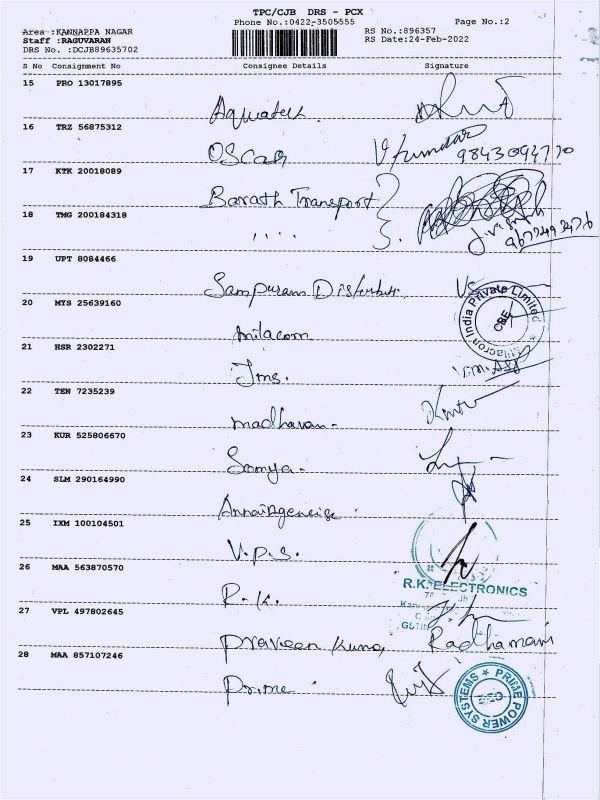 TPC/CJB DRS - PCX
Phone No.:0422-3505555 Page No.:2
Area :KANNAPPA NAGAR RS No.:896357
Staff :RAGUVARAN RS Date:24-Feb-2022
DRS No. :DCJB89635702
S No Consignment No Consignee Details Signature
15 PRO 13017895
Aquatech
16 TRZ 56875312
OSCAR V.Kumar
9843094770
17 KTK 20018089
Barath Transport
18 TMG 200184318
9677493476
19 UPT 8084466
Sampuram Distributi
20 MYS 25639160
Milacron India Private Limited CBE
milacorn
21 HSR 2302271
Jms.
22 TEN 7235239
madhavan-
23 KUR 525806670
Somya-
24 SLM 290164990
25 IXM 100104501
V.P.S.
26 MAA 563870570
R.K. ELECTRONICS
R.K.
GSTIN
27 VPL 497802645
Praveen Kumar Radhamani
28 MAA 857107246
Prime
PRIME POWER SYSTEMS